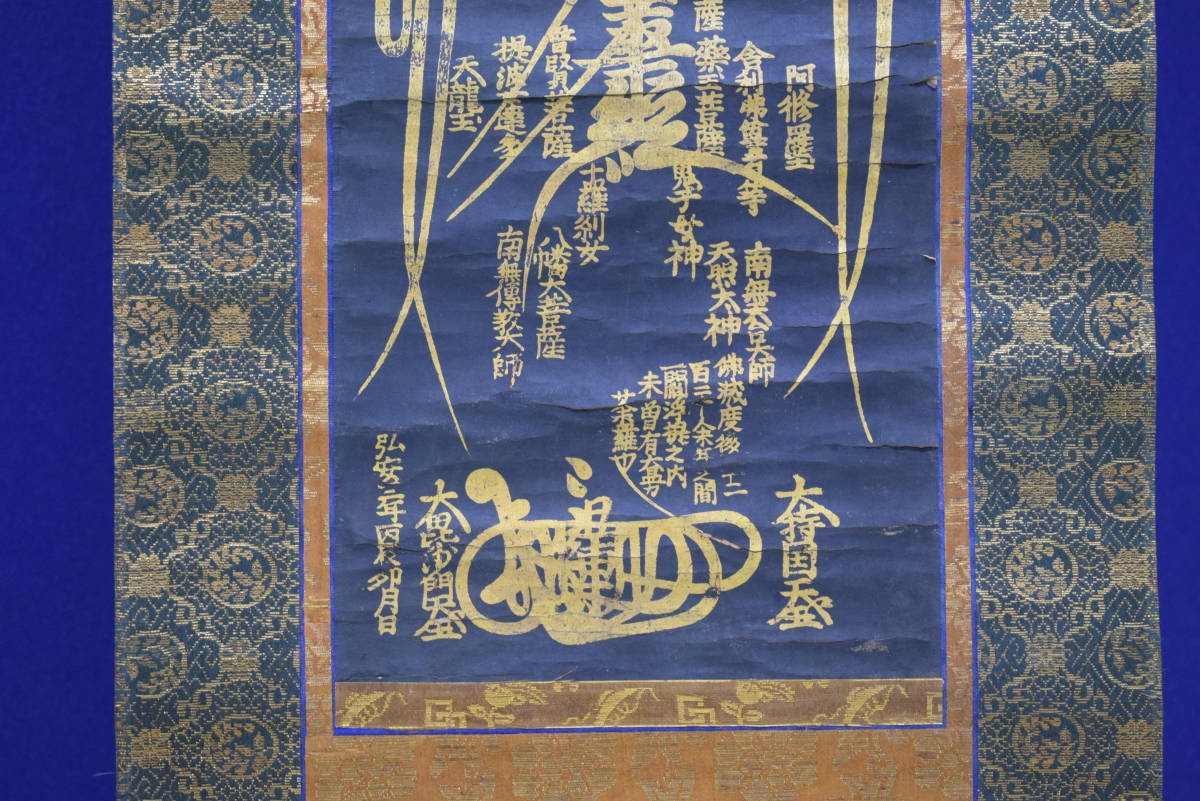 阿修羅王
舎利弗尊者等
薩
藥王菩薩
普賢菩薩
提婆達多
天龍王
鬼子母神
十羅刹女
南無天台大師
天照大神
八幡大菩薩
南無傳教大師
佛滅度後二千二
百三十余年之間
一閻浮提之内
未曾有大曼
荼羅也
大持国天王
日蓮
大毘沙門天王
弘安二年
卯月日